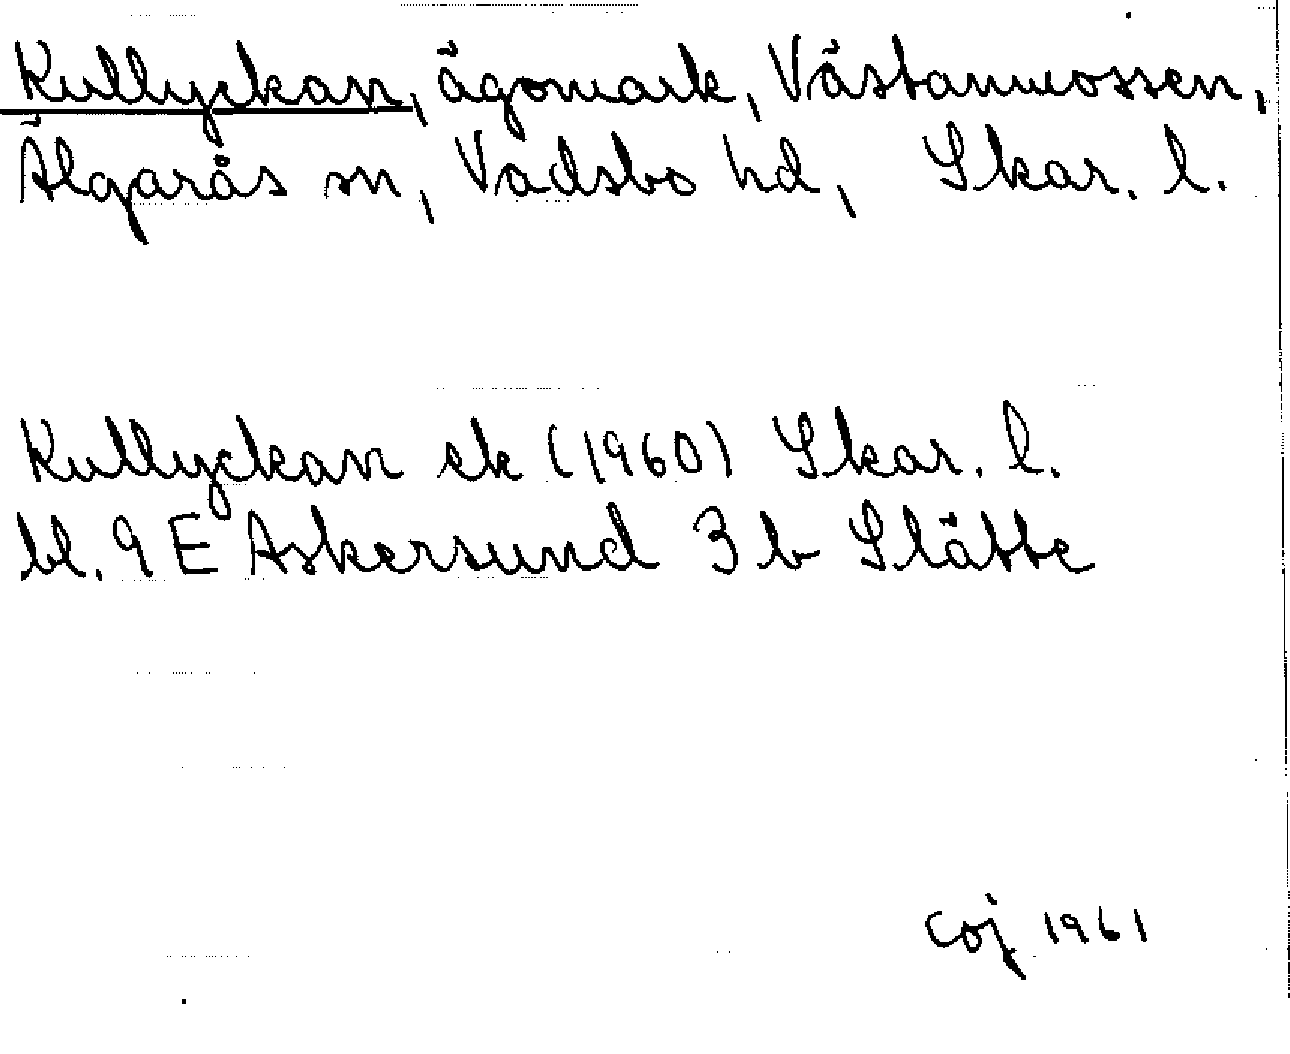 Kullyckan, ägomark, Västanmossen,
Älgarås sn, Vadsbo hd, Skar. l.
Kullyckan ek (1960) Skar. l.
bl. 9 E Askersund 3 b Slätte
Coj 1961